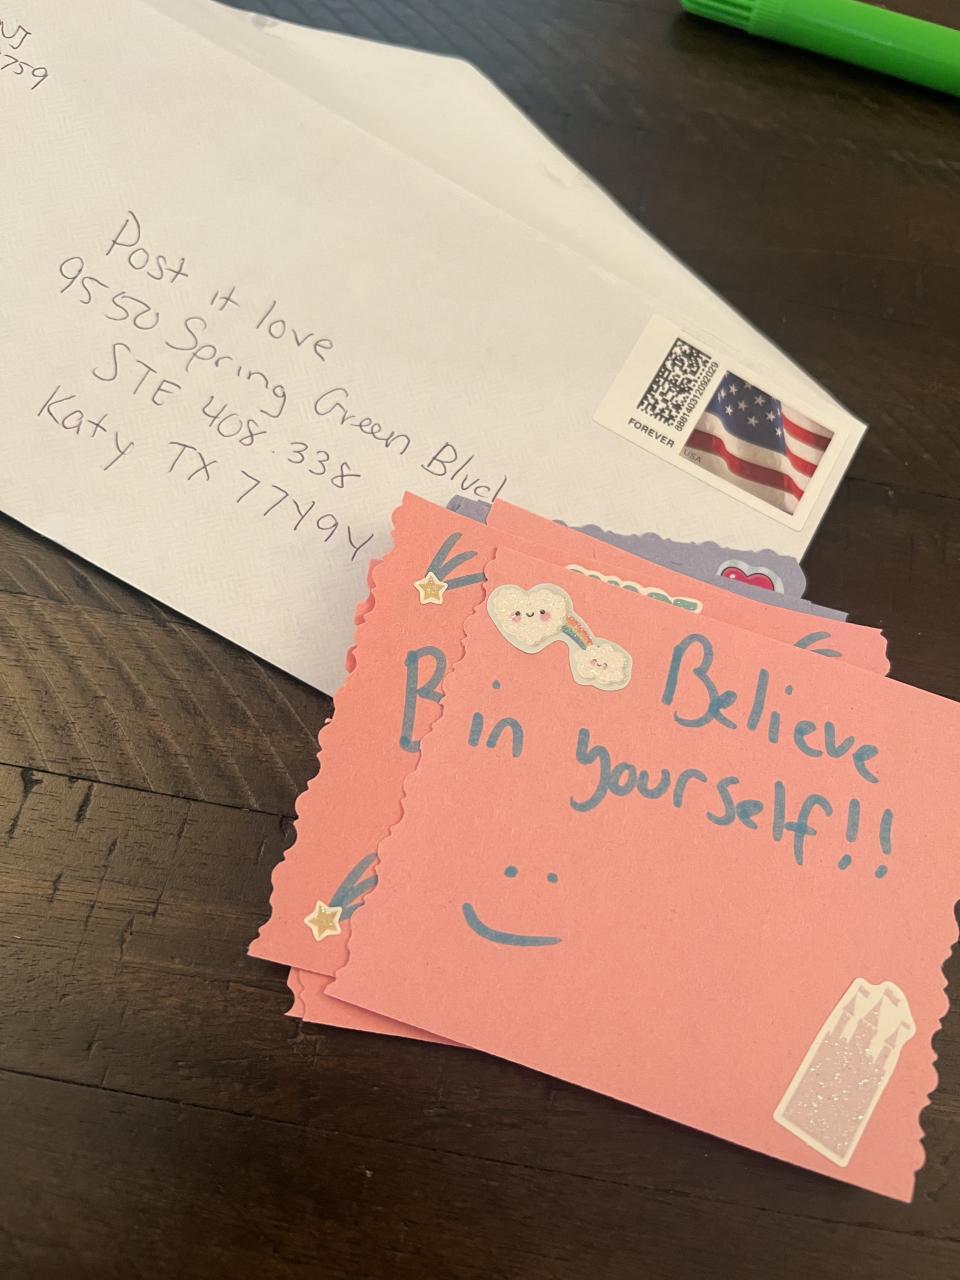 NJ
759
Post it love
9550 Spring Green Blvd
STE 408.338
Katy TX 77494
FOREVER
888140312092029
USA
B
Believe
in yourself!!